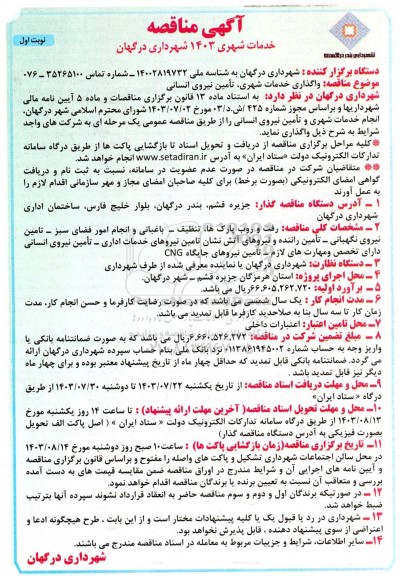 آگهی مناقصه
نوبت اول
خدمات شهری ۱۴۰۳ شهرداری درگهان
شهرداری بندر درگهان
دستگاه برگزار کننده : شهرداری درگهان به شناسه ملی ۱۴۰۰۲۸۱۹۷۳۲ ــ شماره تماس ۳۵۲۶۵۱۰۰ ــ ۰۷۶
موضوع مناقصه: واگذاری خدمات شهری، تأمین نیروی انسانی
شهرداری درگهان در نظر دارد: به استناد ماده ۱۳ قانون برگزاری مناقصات و ماده ۵ آیین نامه مالی
شهرداریها و براساس مجوز شماره ۴۲۵ /ش.د/۰۳ مورخ ۱۴۰۳/۰۷/۰۲ شورای محترم اسلامی شهر درگهان،
انجام خدمات شهری و تأمین نیروی انسانی را از طریق مناقصه عمومی یک مرحله ای به شرکت های واجد
شرایط به شرح ذیل واگذاری نماید.
※کلیه مراحل برگزاری مناقصه از دریافت و تحویل اسناد تا بازگشایی پاکت ها از طریق درگاه سامانه
تدارکات الکترونیک دولت «ستاد ایران» به آدرس www.setadiran.ir انجام خواهد شد.
※※ متقاضیان شرکت در مناقصه در صورت عدم عضویت در سامانه، نسبت به ثبت نام و دریافت
گواهی امضای الکترونیکی (بصورت برخط) برای کلیه صاحبان امضای مجاز و مهر سازمانی اقدام لازم را
به عمل آورند
۱ ــ آدرس دستگاه مناقصه گذار: جزیره قشم، بندر درگهان، بلوار خلیج فارس، ساختمان اداری
شهرداری درگهان
۲ ــ مشخصات کلی مناقصه: رفت و روب پارک ها، تنظیف ــ باغبانی و انجام امور فضای سبز ــ تامین
نیروی نگهبانی ــ تأمین راننده و نیروهای آتش نشان تامین نیروهای خدمات اداری ــ تأمین نیروی انسانی
دارای تخصص ومهارت های لازم ــ تأمین نیروهای جایگاه CNG
۳ ــ دستگاه نظارت: شهرداری درگهان یا نماینده معرفی شده از طرف شهرداری
۴ ــ محل اجرای پروژه: استان هرمزگان جزیره قشم ــ شهر درگهان.
۵ ــ برآورد اولیه: ۶۶.۶۰۵.۲۶۲.۷۲۰ ریال می باشد.
۶ ــ مدت انجام کار : یک سال شمسی می باشد که در صورت رضایت کارفرما و حسن انجام کار، مدت
زمان کار تا سه سال بنا به صلاحدید کارفرما قابل تمدید می باشد.
۷ــ محل تامین اعتبار: اعتبارات داخلی
۸ ــ مبلغ تضمین شرکت در مناقصه: ۶.۶۶۰.۵۲۶.۲۷۲ریال می باشد که به صورت ضمانتنامه بانکی یا
واریز وجه به حساب شماره ۰۱۱۳۸۶۱۹۴۵۰۰۲ نزد بانک ملی بنام حساب سپرده شهرداری درگهان ارائه
می گردد. ضمانتنامه بانکی قابل تمدید که حداقل چهار ماه از تاریخ پیشنهاد معتبر بوده و برای چهار ماه
دیگر نیز قابل تمدید باشد .
۹ــ محل و مهلت دریافت اسناد مناقصه: از تاریخ یکشنبه ۱۴۰۳/۰۷/۲۲ تا دوشنبه ۱۴۰۳/۰۷/۳۰ از طریق
درگاه « ستاد ایران»
۱۰ــ محل و مهلت تحویل اسناد مناقصه( آخرین مهلت ارائه پیشنهاد) : تا ساعت ۱۴ روز یکشنبه مورخ
۱۴۰۳/۰۸/۱۳ از طریق درگاه سامانه تدارکات الکترونیک دولت « ستاد ایران » ( اصل پاکت الف تحویل
بصورت فیزیکی به آدرس دستگاه مناقصه گذار)
۱۱ــ تاریخ برگزاری مناقصه(زمان بازگشایی پاکت ها ) : ساعت۱۰ صبح روز دوشنبه مورخ ۱۴۰۳/۰۸/۱۴
در محل سالن اجتماعات شهرداری تشکیل و پاکت های واصله را مفتوح و براساس قانون برگزاری مناقصه
و آیین نامه های اجرایی آن و شرایط مندرج در اوراق مناقصه ضمن مقایسه قیمت های به دست آمده
بررسی و متعاقب آن نسبت به تعیین برنده یا برندگان مناقصه اقدام خواهد نمود.
۱۲ ــ در صورتیکه برندگان اول و دوم و سوم مناقصه حاضر به انعقاد قرارداد نشوند سپرده آنها بترتیب
ضبط خواهد شد.
۱۳ ــ شهرداری در رد یا قبول یک یا کلیه پیشنهادات مختار است و از این بابت ، طرح هیچگونه ادعا و
اعتراضی از سوی پیشنهاد دهنده ، قابل پذیرش نخواهد بود.
۱۴ــ سایر اطلاعات، شرایط و جزییات مربوط به معامله در اسناد مناقصه مندرج می باشند.
شهرداری درگهان